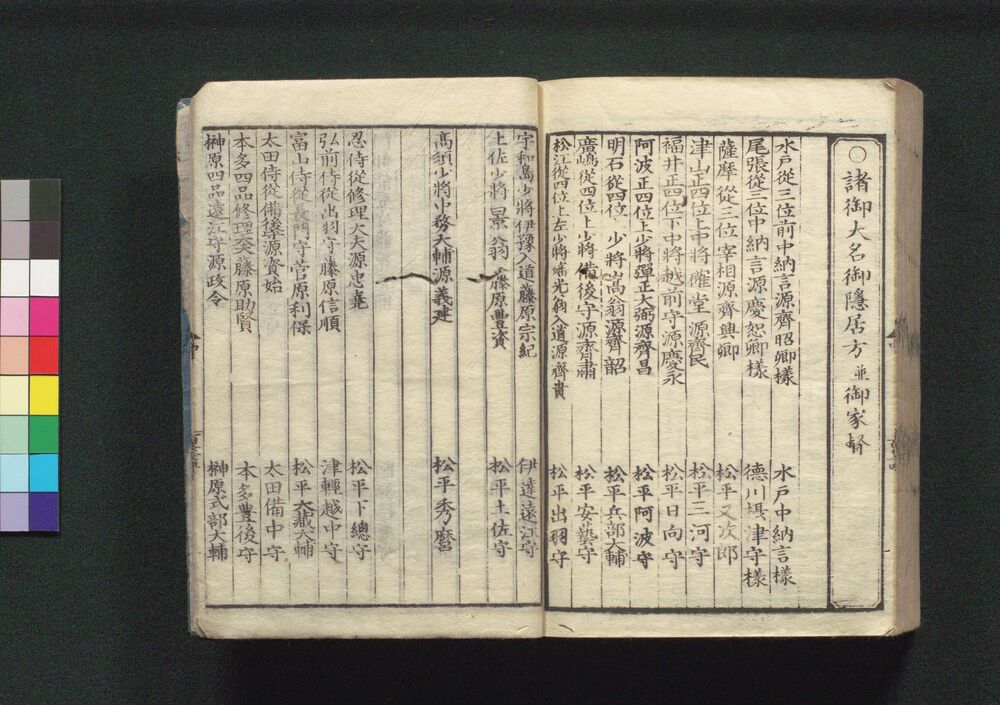 ○諸御大名御隱居方並御家督
水戸從三位前中納言源齊昭卿樣 水戸中納言樣
尾張從三位中納言源慶恕卿樣 德川摂津守樣
薩摩從三位宰相源齊興卿 松平又次郎
津山正四位上中將確堂源齊民 松平三河守
福井正四位下中將越前守源慶永 松平日向守
阿波正四位上少將彈正大弼源齊昌 松平阿波守
明石從四位少將嵩翁源齊韶 松平兵部大輔
廣嶋從四位上少將備後守源齊肅 松平安藝守
松江從四位上左少將瑤光翁入道源齊貴 松平出羽守
宇和島少將伊豫入道藤原宗紀 伊達遠江守
土佐少將景翁藤原豐資 松平土佐守
高須少將中務大輔源義建 松平秀麿
忍侍從修理大夫源忠堯 松平下總守
弘前侍從出羽守藤原信順 津輕越中守
富山侍從長門守菅原利保 松平大藏大輔
太田侍從備後守源資始 太田備中守
本多四品修理大夫藤原助賢 本多豊後守
榊原四品遠江守源政令 榊原式部大輔